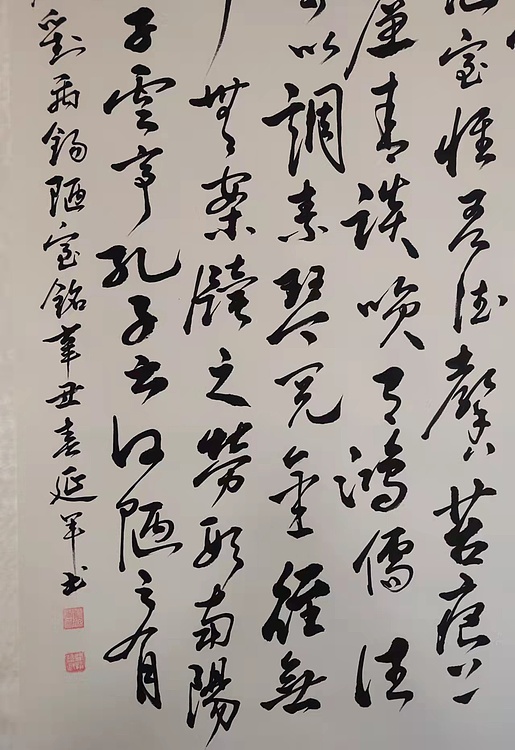 室惟吾德馨苔痕上
簾青談咲有鴻儒往
可以調素琴閱金經無
無案牘之勞形南陽
子雲亭孔子云何陋之有
劉禹錫陋室銘辛丑春延軍書